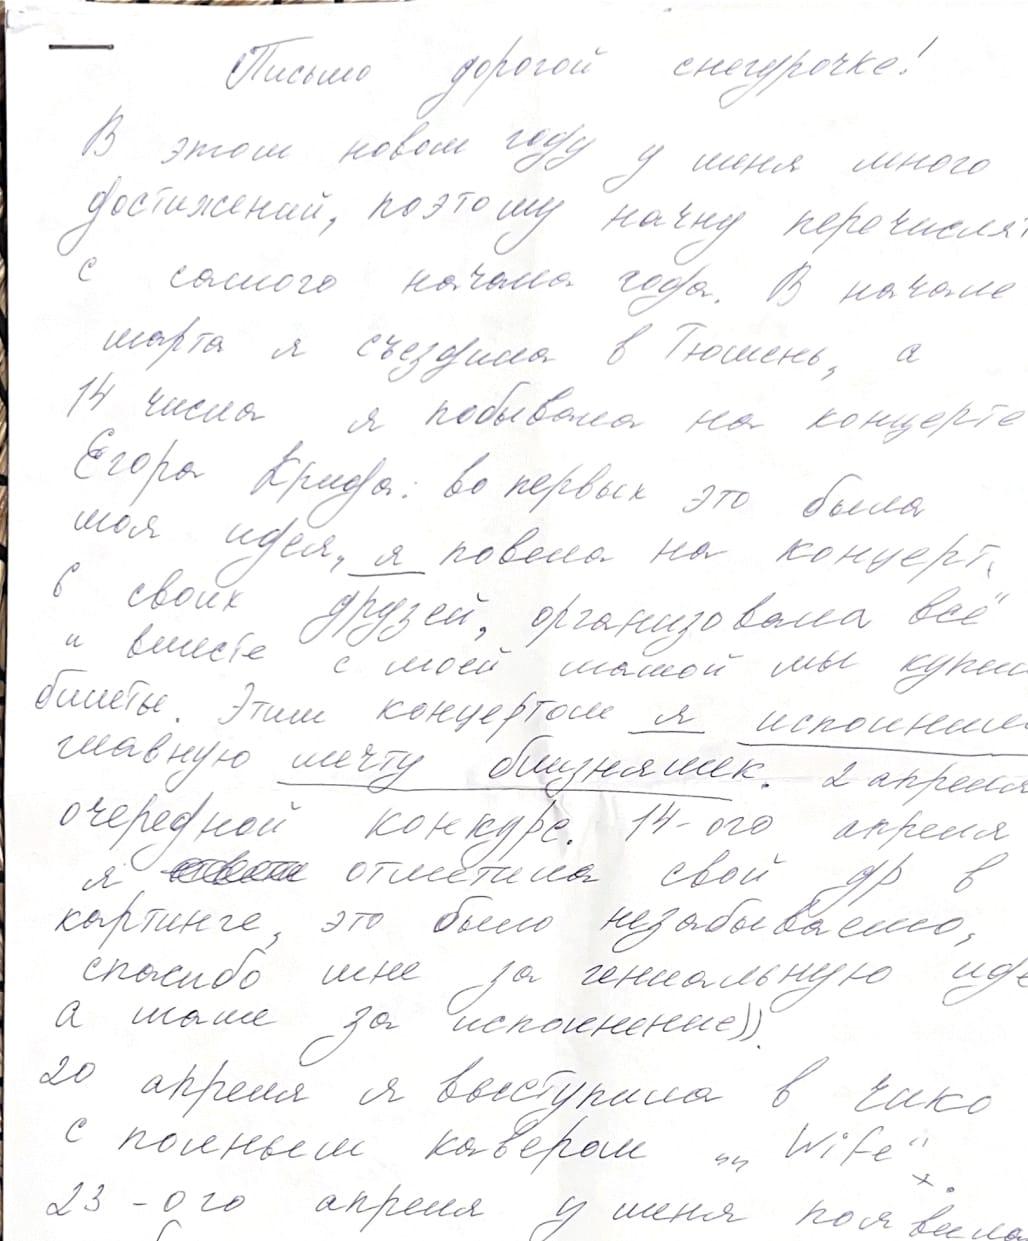 Письмо дорогой снегурочке!
В этом новом году у меня много
достижений, поэтому начну перечислят
с самого начала года. В начале
марта я съездила в Тюмень, а
14 числа я побывала на концерте
Егора Крида: во первых это была
моя идея, я повела на концерт
6 своих друзей, организовала всё
и вместе с моей мамой мы купи
билеты. Этим концертом я исполнила
главную мечту близняшек. 2 апреля
очередной конкурс. 14-ого апреля
я отметила свой др в
картинге, это было незабываемо,
спасибо мне за гениальную иде
а маме за исполнение)).
20 апреля я выступила в Чико
с полным кавером „„ Wife“.
23-ого апреля у меня появила